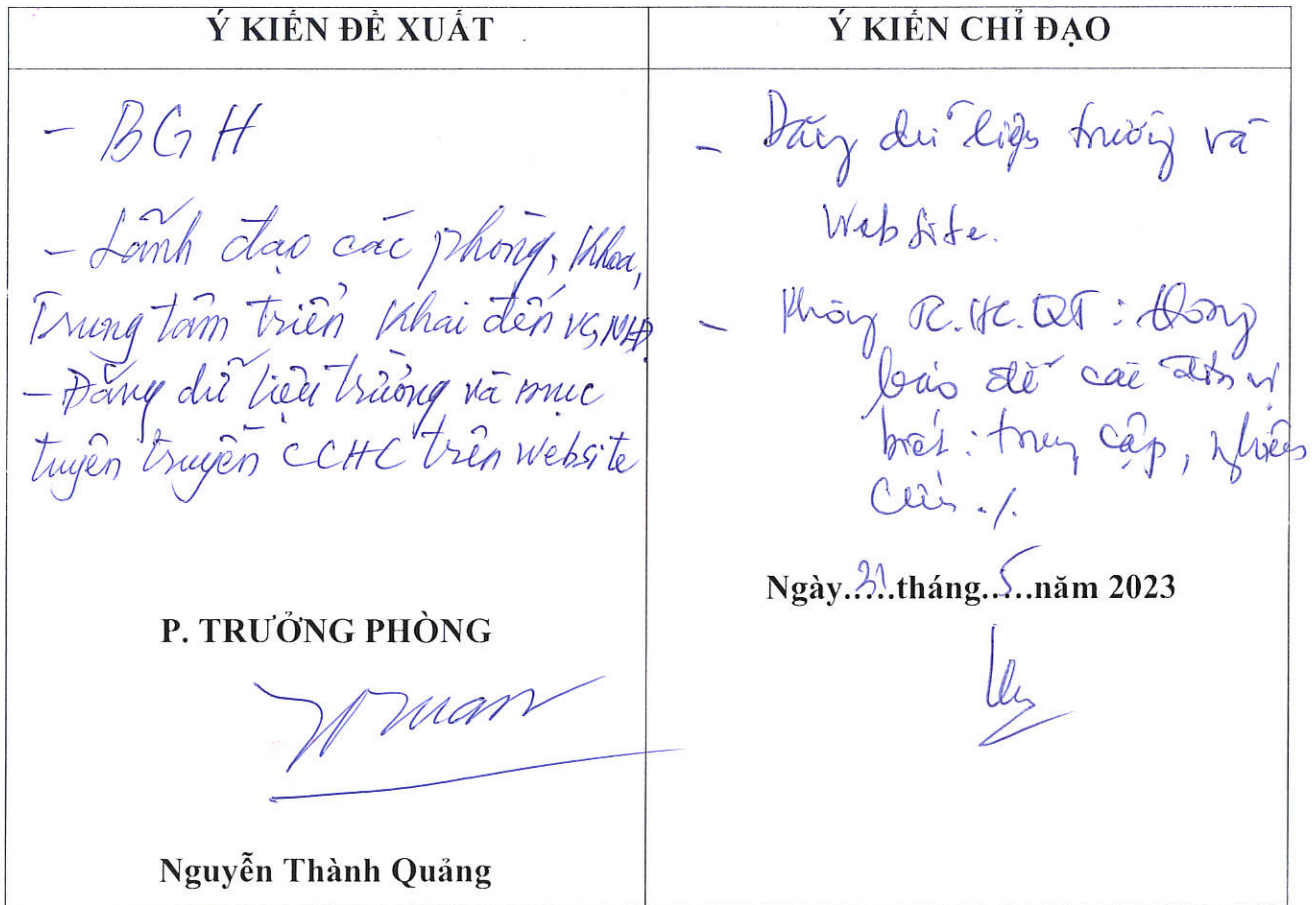 Ý KIẾN ĐỀ XUẤT
- BGH
- Lãnh đạo các phòng, khoa,
Trung tâm triển khai đến VC, NLĐ
- Đăng dữ liệu trường và mục
tuyên truyền CCHC trên website
P. TRƯỞNG PHÒNG
Nguyễn Thành Quảng
Ý KIẾN CHỈ ĐẠO
- Đăng dữ liệu trường và
Website.
- Phòng TC.HC.QT: thông
báo để các đơn vị
biết: truy cập, nghiên
cứu ./.
Ngày 31 tháng 5 năm 2023